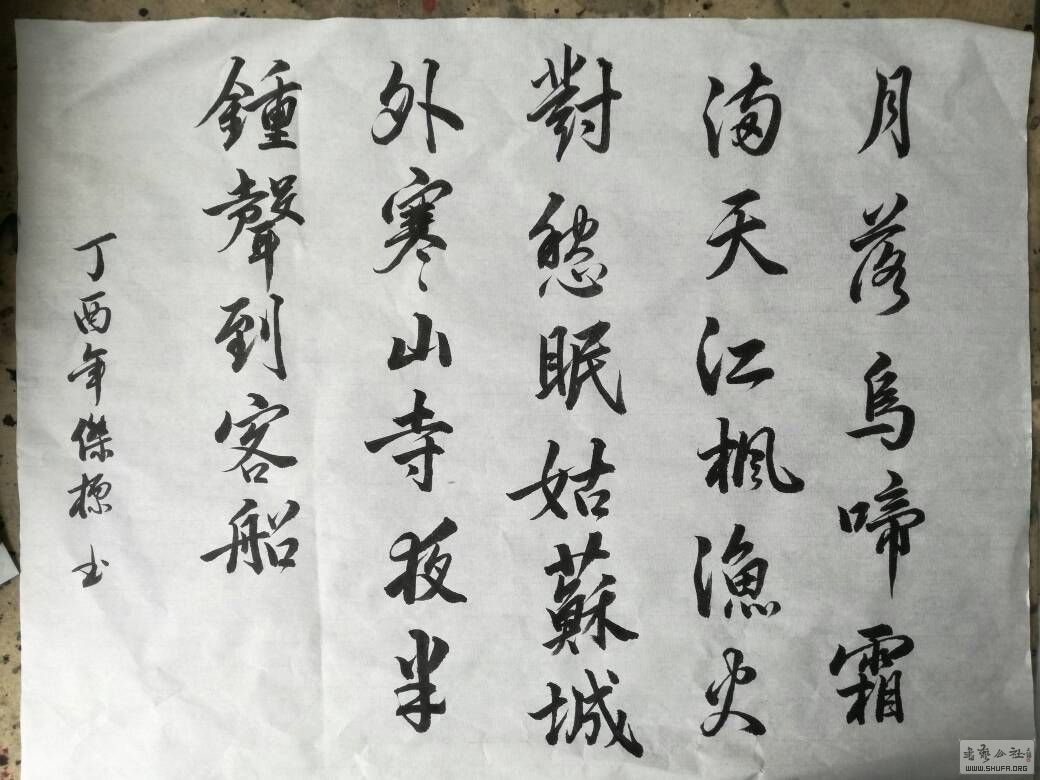 月落烏啼霜
滿天江楓漁火
對愁眠姑蘇城
外寒山寺夜半
鍾聲到客船
丁酉年傑標书
书艺公社
WWW.SHUFA.ORG